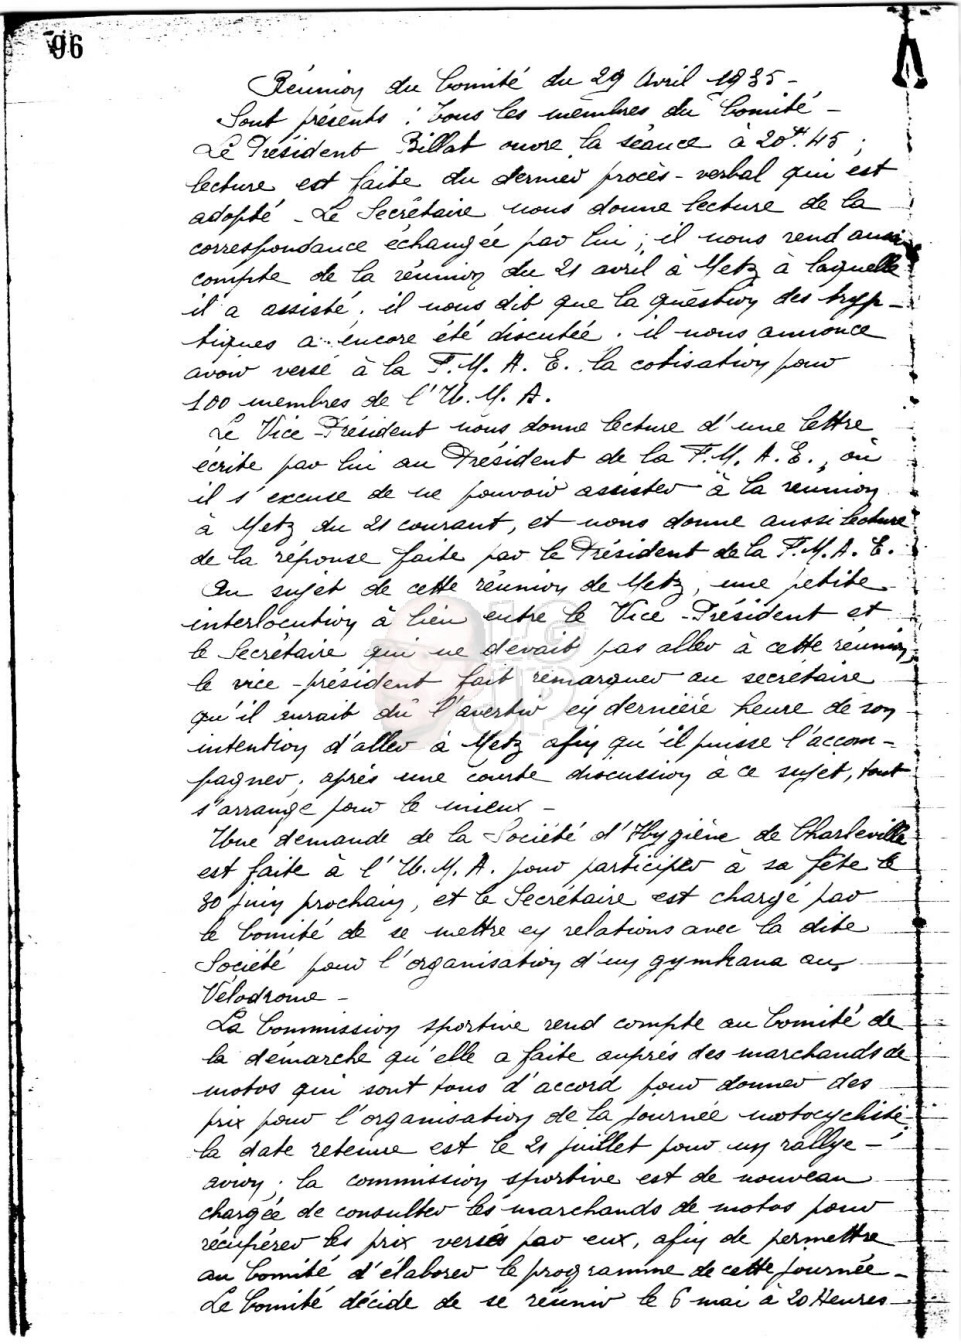 96
Réunion du Comité du 29 Avril 1935 -
Sont présents : Tous les membres du Comité -
Le Président Billat ouvre la séance à 20H.45 ;
lecture est faite du dernier procès-verbal qui est
adopté - Le Secrétaire nous donne lecture de la
correspondance échangée par lui ; il nous rend aussi
compte de la réunion du 21 avril à Metz à laquelle
il a assisté. il nous dit que la question des tryp-
tiques a encore été discutée. il nous annonce
avoir versé à la F.M.A.E. la cotisation pour
100 membres de l'U.M.A.
Le Vice-Président nous donne lecture d'une lettre
écrite par lui au Président de la F.M.A.E., où
il s'excuse de ne pouvoir assister à la réunion
à Metz du 21 courant, et nous donne aussi lecture
de la réponse faite par le Président de la F.M.A.E.
Au sujet de cette réunion de Metz, une petite
interlocution à lieu entre le Vice-Président et
le Secrétaire qui ne devait pas aller à cette réunion,
le vice-président fait remarquer au secrétaire
qu'il aurait dû l'avertir en dernière heure de son
intention d'aller à Metz afin qu'il puisse l'accom-
pagner, après une courte discussion à ce sujet, tout
s'arrange pour le mieux -
Une demande de la Société d'Hygiène de Charleville
est faite à l'U.M.A. pour participer à sa fête le
30 juin prochain, et le Secrétaire est chargé par
le Comité de se mettre en relations avec la dite
Société pour l'organisation d'un gymkana au
Vélodrome -
La Commission sportive rend compte au Comité de
la démarche qu'elle a faite auprès des marchands de
motos qui sont tous d'accord pour donner des
prix pour l'organisation de la journée motocycliste,
la date retenue est le 21 juillet pour un rallye-
avion ; la commission sportive est de nouveau
chargée de consulter les marchands de motos pour
récupérer les prix versés par eux, afin de permettre
au Comité d'élaborer le programme de cette journée -
Le Comité décide de se réunir le 6 mai à 20 Heures